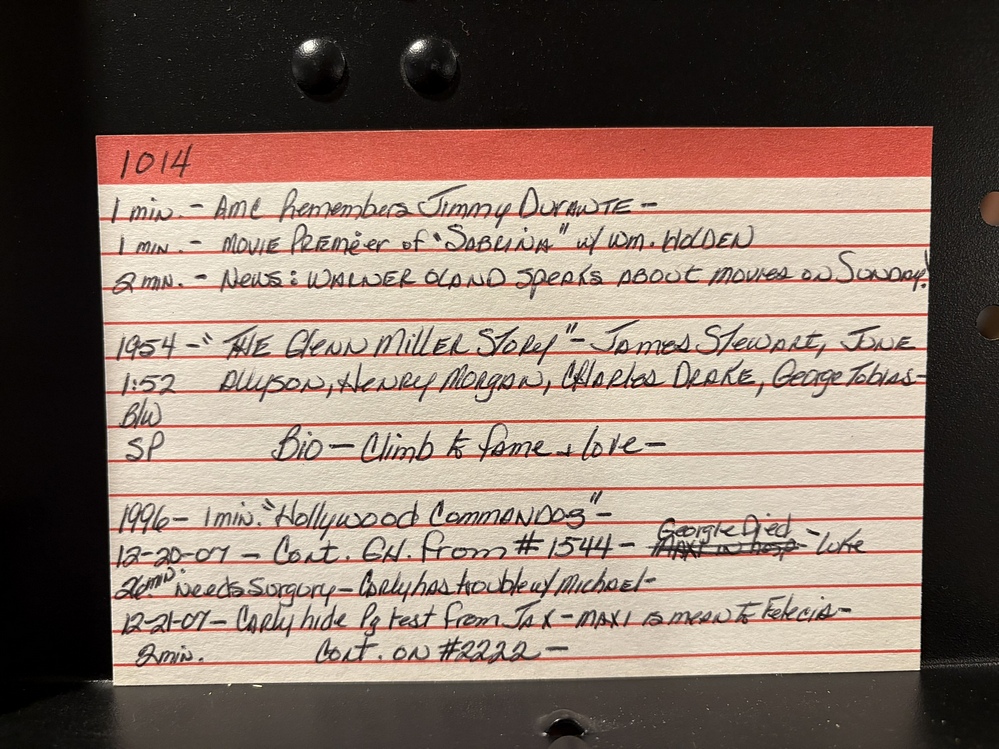 1014
1 min. - AMC Remembers Jimmy DURANTE -
1 min. - MOVIE PREMEIER of "SABRINA" w/ WM. HOLDEN
2 min. - News: WARNER OLAND Speaks ABOUT movies on Sunday!
1954 - "THE Glenn Miller Story" - James Stewart, June
1:52 Allyson, Henry Morgan, Charles Drake, George Tobias -
B/W
SP Bio - Climb to fame + love -
1996 - 1 min. "Hollywood Commandos" -
Georgie Died -
12-20-07 - Cont. GH. from #1544 - MAXI in hosp - Luke
26 min Needs Surgory - Carly has trouble w/ Michael -
12-21-07 - Carly hide Pg test from JAX - MAXI is mean to Felecia -
2 min. Cont. ON #2222 -